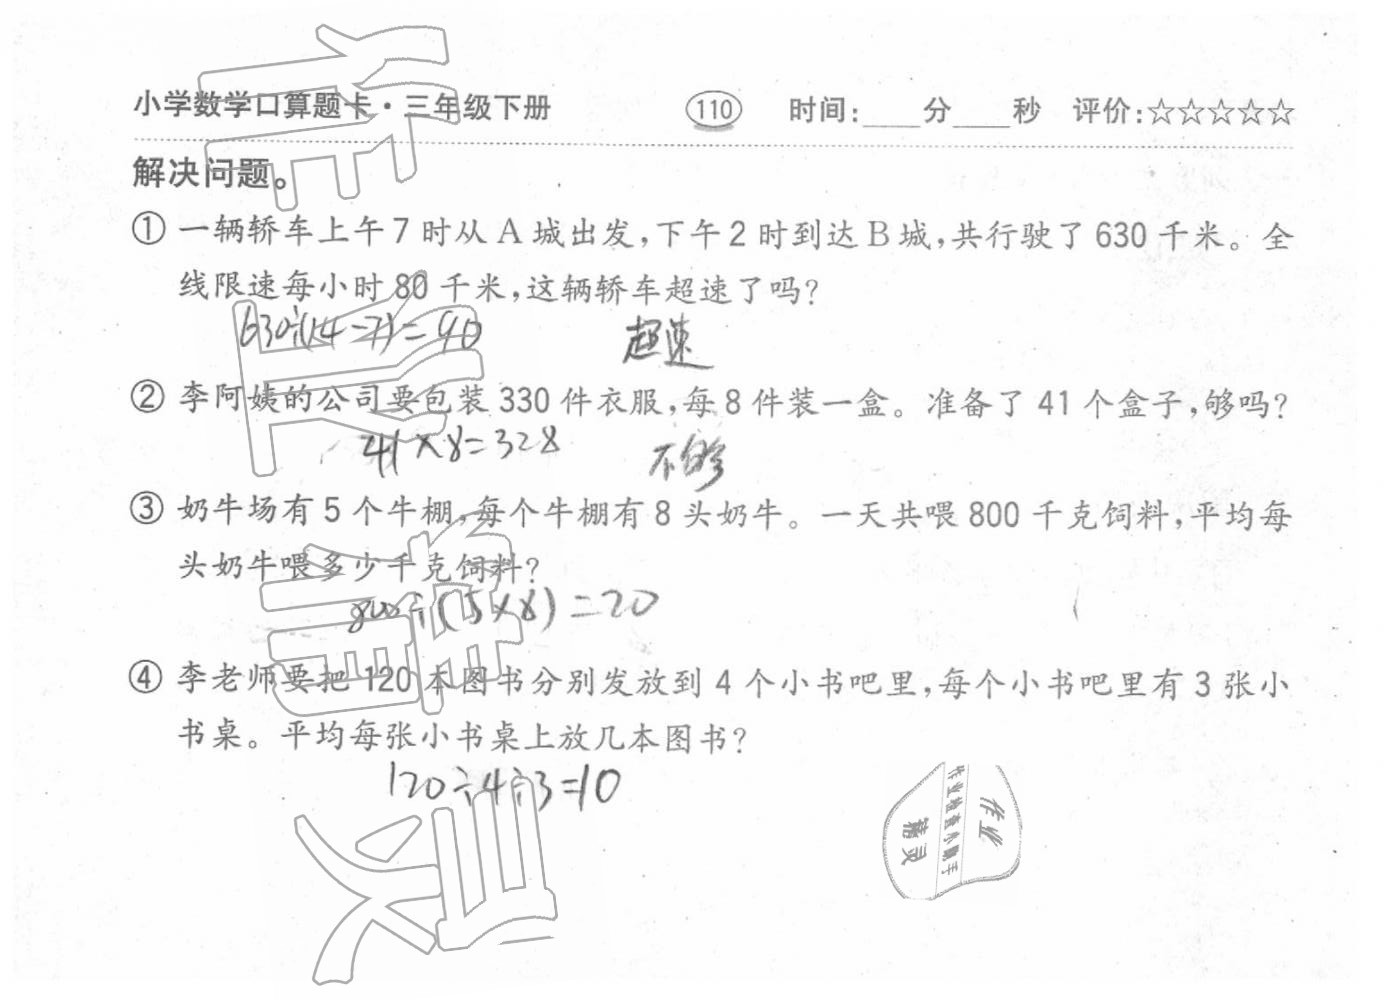 小学数学口算题卡·三年级下册 110 时间:____分____秒 评价:☆☆☆☆☆
解决问题。
① 一辆轿车上午7时从A城出发,下午2时到达B城,共行驶了630千米。全
线限速每小时80千米,这辆轿车超速了吗?
630÷(14-7)=90 超速
② 李阿姨的公司要包装330件衣服,每8件装一盒。准备了41个盒子,够吗?
41×8=328 不够
③ 奶牛场有5个牛棚,每个牛棚有8头奶牛。一天共喂800千克饲料,平均每
头奶牛喂多少千克饲料?
800÷(5×8)=20
④ 李老师要把120本图书分别发放到4个小书吧里,每个小书吧里有3张小
书桌。平均每张小书桌上放几本图书?
120÷4÷3=10
作业
作业检查小助手
精灵